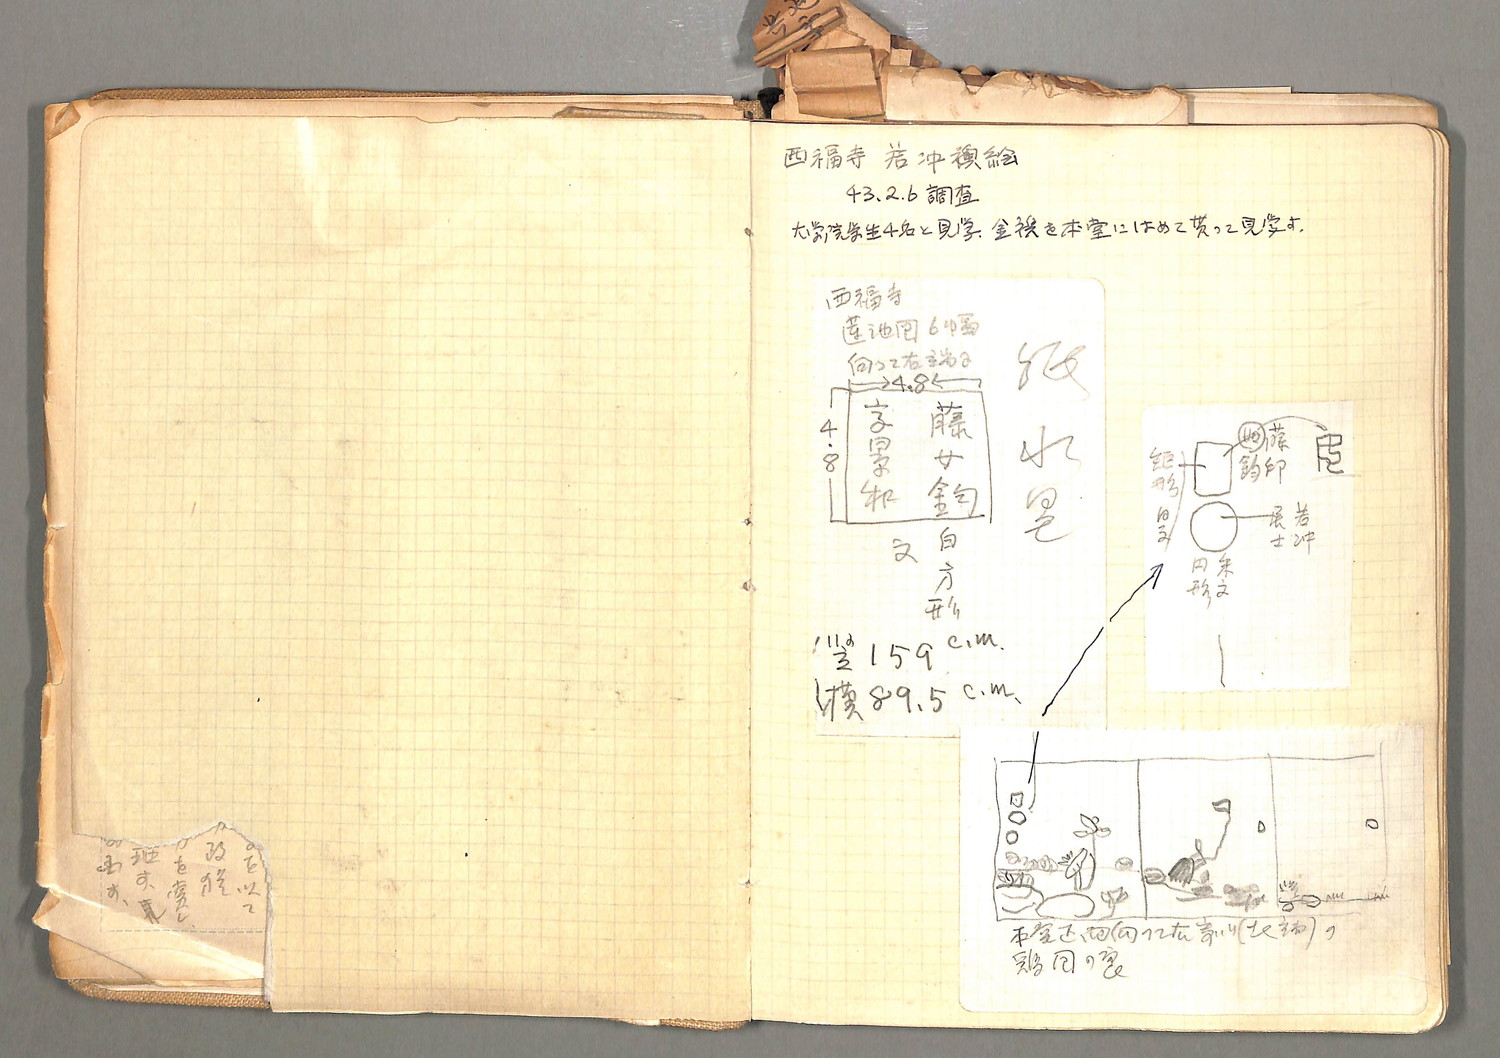 西福寺 若冲襖絵
43.2.6 調査
大学院学生4名と見学、全襖を本堂にはめて貰って見学す。
西福寺
蓮池図 6幅
向って右端の
4.8
4.8
藤女鈞
字景和
白方形
文
紙水墨
竪 159 c.m.
横 89.5 c.m.
藤女鈞印
矩形白文
若冲居士
朱文円形
本堂正面向って右寄り(右端)の
鶏図の裏
を以て
政
を
す、
す、